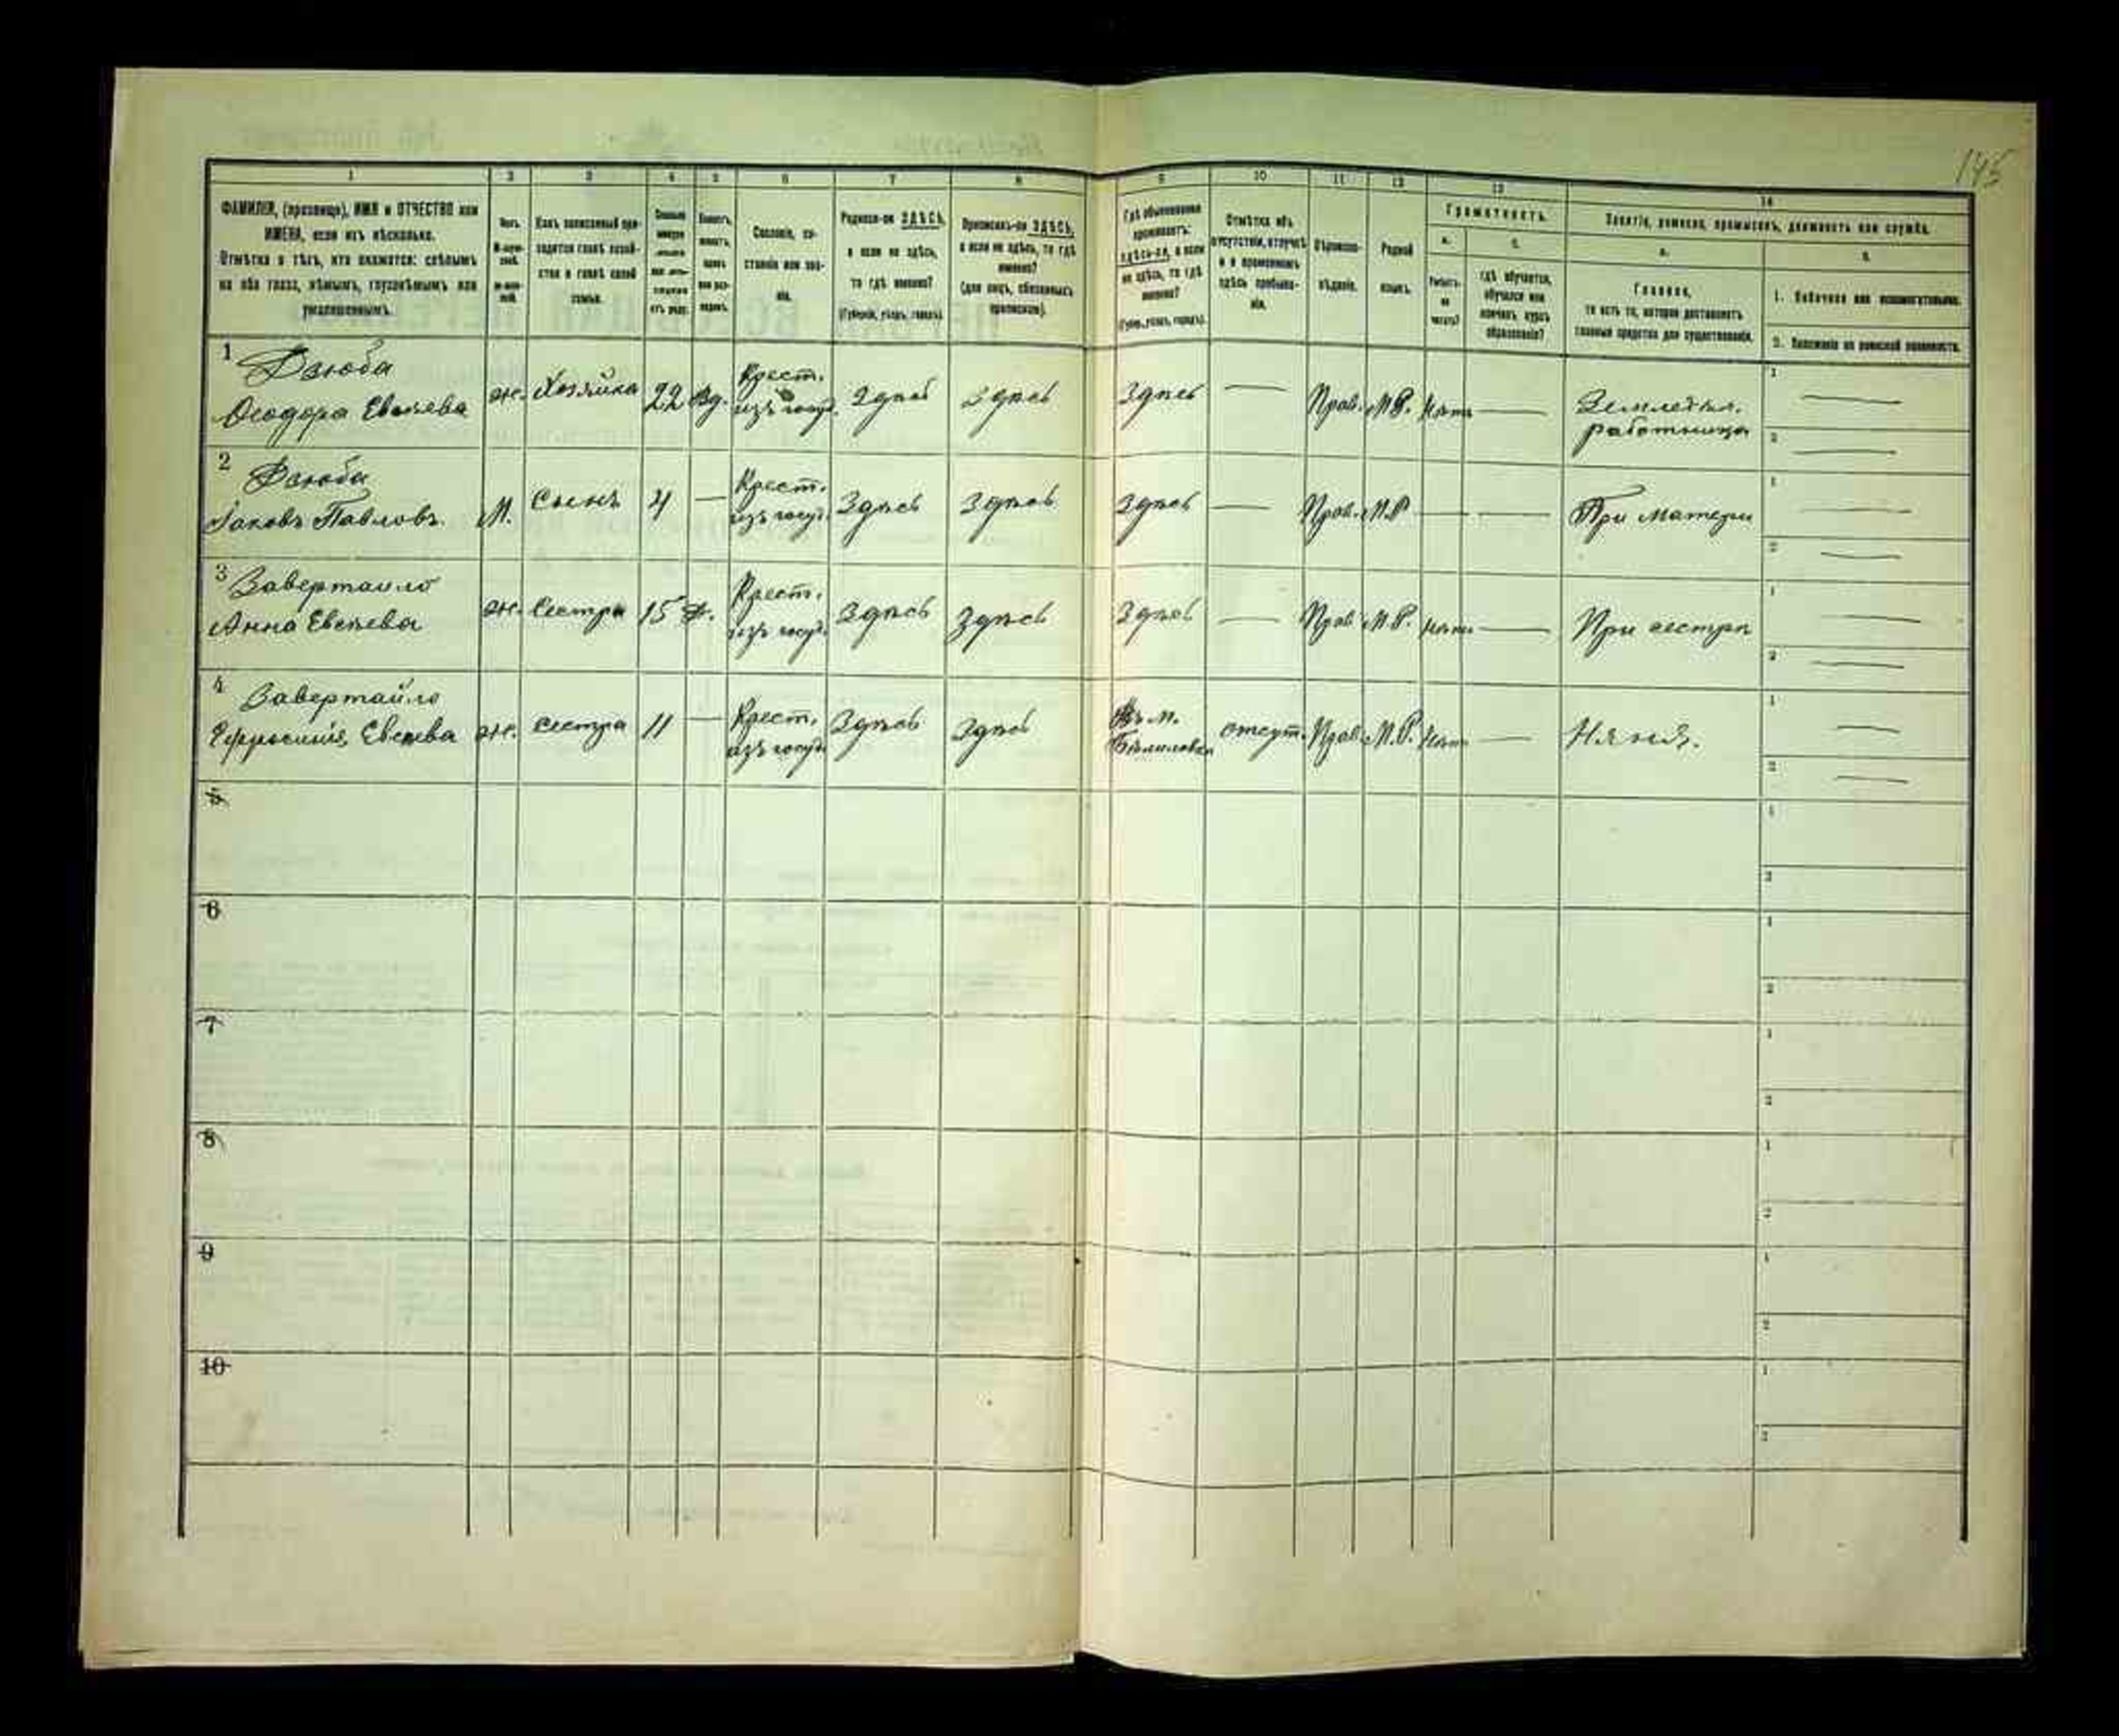 145
1 2 3 4 5 6 7 8 9 10 11 12 13 14
ФАМИЛІЯ, (прозвище), ИМЯ и ОТЧЕСТВО или
ИМЕНА, если ихъ нѣсколько.
Отмѣтка о тѣхъ, кто окажется: слѣпымъ
на оба глаза, нѣмымъ, глухонѣмымъ или
умалишеннымъ.
Полъ.
Какъ записанный при-
ходится главѣ хозяй-
ства и главѣ своей
семьи.
Сословіе, со-
стояніе или зва-
ніе.
Родился-ли ЗДѢСЬ,
а если не здѣсь,
то гдѣ именно?
(Губернія, уѣздъ, городъ).
Приписанъ-ли ЗДѢСЬ,
а если не здѣсь, то гдѣ
именно?
(для лицъ, обязанныхъ
припискою).
Гдѣ обыкновенно
проживаетъ:
здѣсь-ли, а если
не здѣсь, то гдѣ
именно?
(Губер., уѣздъ, городъ).
Отмѣтка объ
отсутствіи, отлучкѣ
и о временномъ
здѣсь пребыва-
ніи.
Вѣроиспо-
вѣданіе.
Родной
языкъ.
Грамотность.
а. б.
Умѣетъ-
ли
читать?
гдѣ обучается,
обучался или
кончилъ курсъ
образованія?
Занятіе, ремесло, промыселъ, должность или служба.
а. б.
Главное,
то есть то, которое доставляетъ
главныя средства для существованія.
1. Побочное или вспомогательное.
2. Положеніе по воинской повинности.
1 Дзюба
Ѳеодора Евсѣева ж. Хозяйка 22 Вд. Крест. изъ госуд. Здѣсь Здѣсь Здѣсь — Прав. М.Р. Нѣтъ — Земледѣл. работница 1 — 2 —
2 Дзюба
Іаковъ Павловъ. М. Сынъ 4 — Крест. изъ госуд. Здѣсь Здѣсь Здѣсь — Прав. М.Р — — При матери 1 — 2 —
3 Завертайло
Анна Евсѣева ж. Сестра 15 Д. Крест. изъ госуд. Здѣсь Здѣсь Здѣсь — Прав. М.Р. Нѣтъ — При сестрѣ 1 — 2 —
4 Завертайло
Ефросинія Евсѣева ж. сестра 11 — Крест. изъ госуд. Здѣсь Здѣсь Въ м. отсут. Прав. М.Р. Нѣтъ — Няня. 1 — 2 —
5 1 2
6 1 2
7 1 2
8 1 2
9 1 2
10 1 2